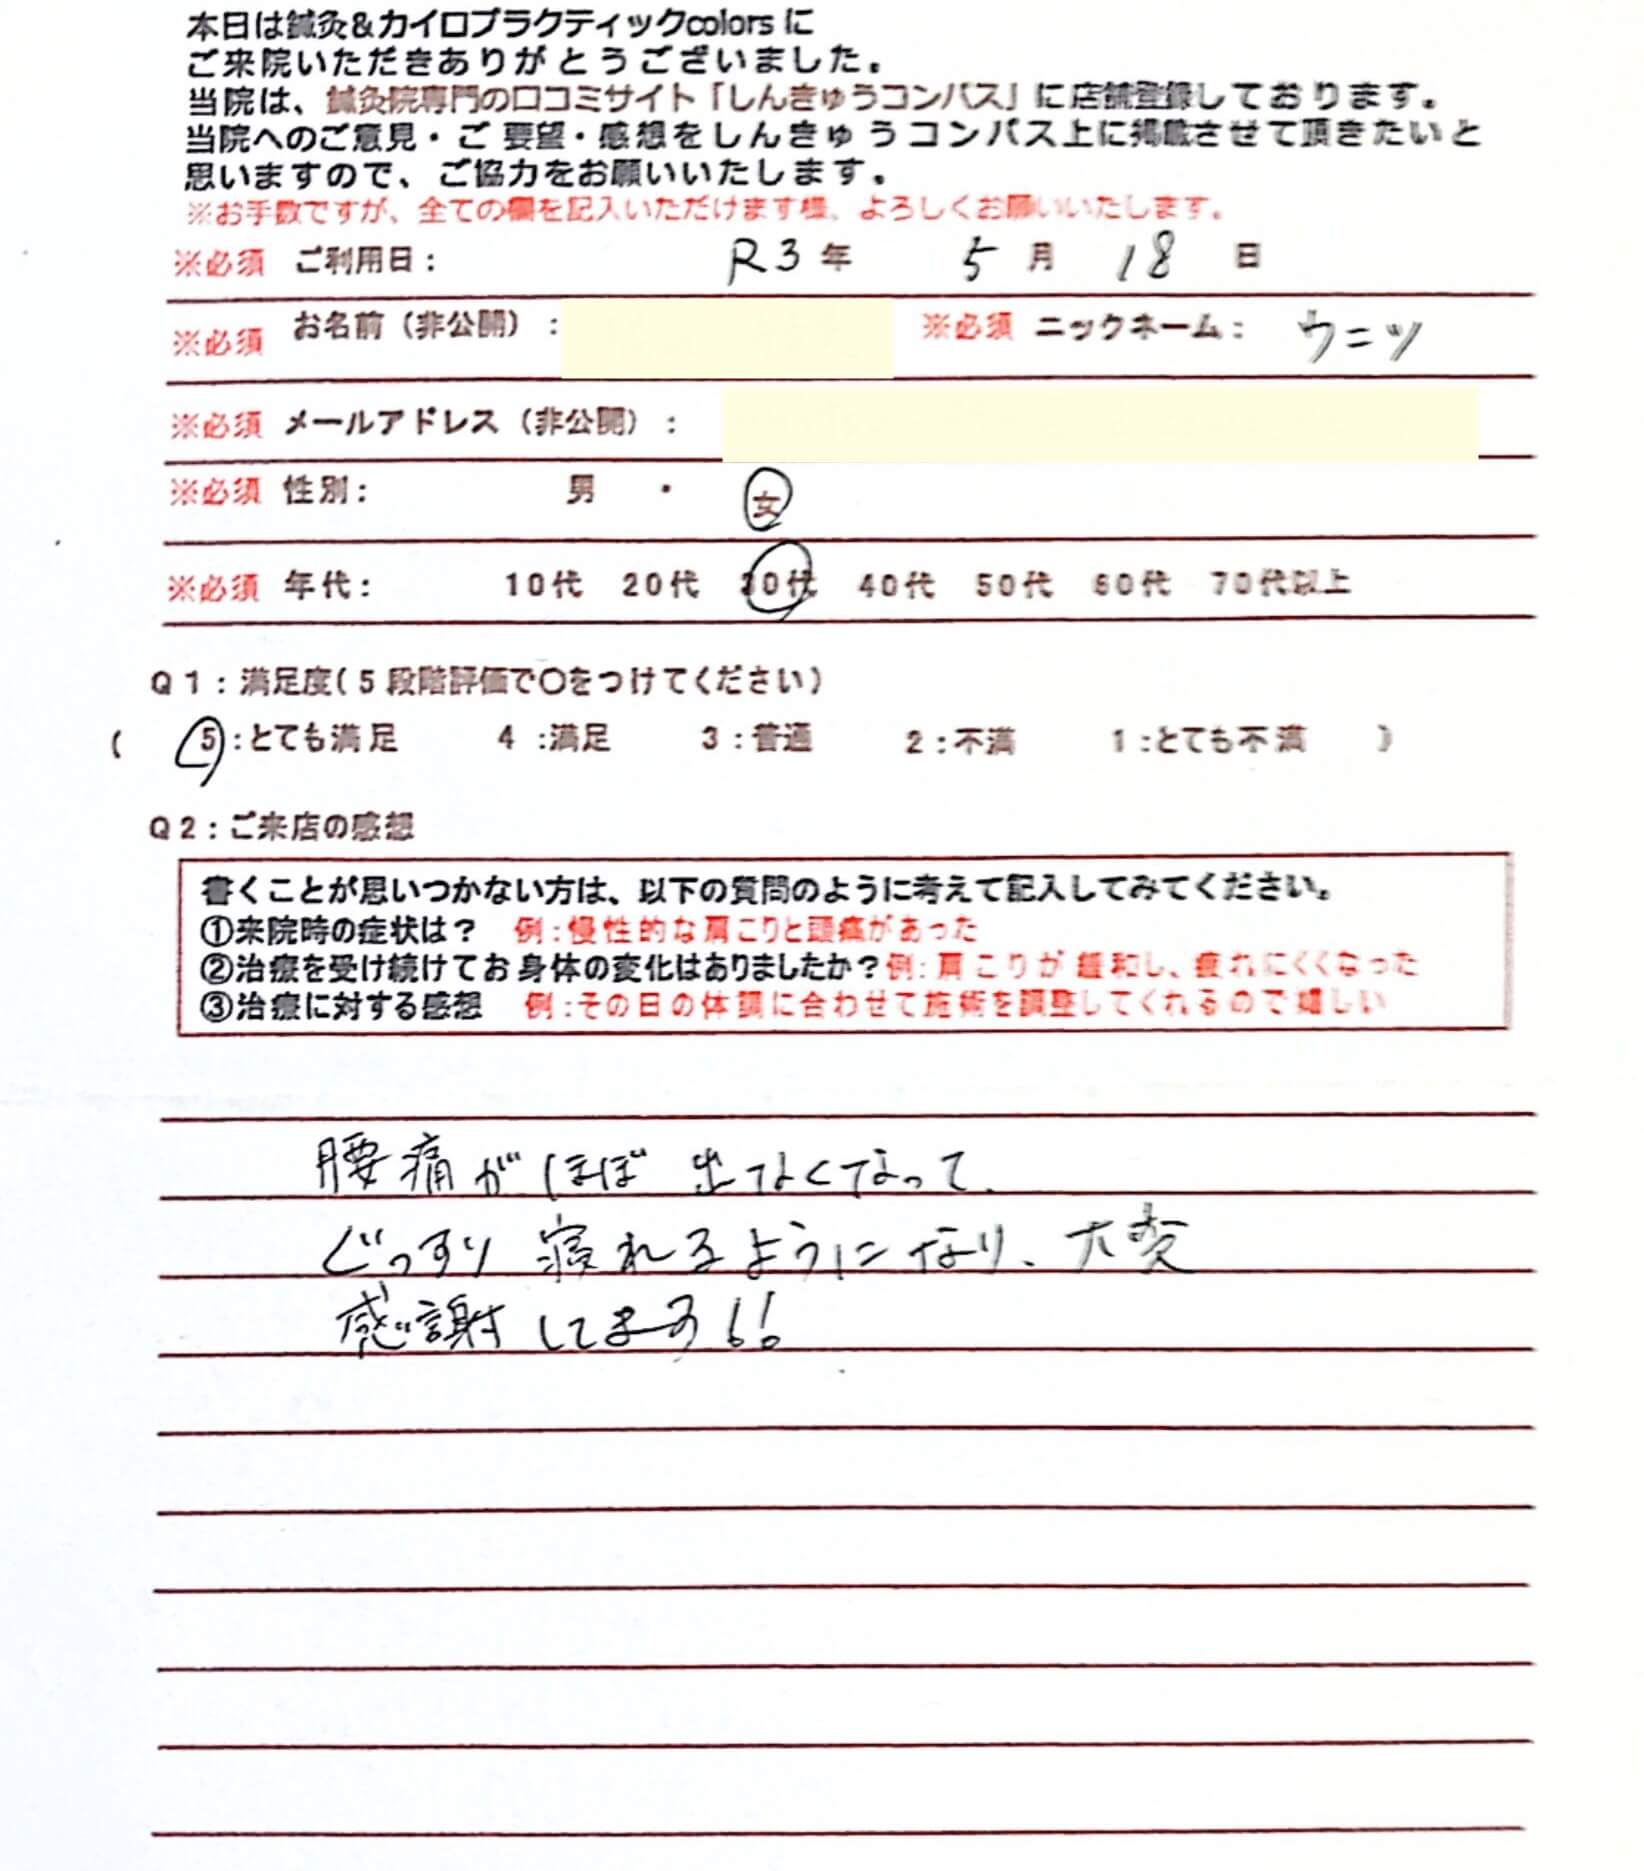 本日は鍼灸&カイロプラクティックcolorsに
ご来院いただきありがとうございました。
当院は、鍼灸院専門の口コミサイト「しんきゅうコンパス」に店舗登録しております。
当院へのご意見・ご要望・感想をしんきゅうコンパス上に掲載させて頂きたいと
思いますので、ご協力をお願いいたします。
※お手数ですが、全ての欄を記入いただけます様、よろしくお願いいたします。
※必須 ご利用日: R3年 5月 18日
※必須 お名前(非公開): ※必須 ニックネーム: ウニツ
※必須 メールアドレス(非公開):
※必須 性別: 男 ・ 女
※必須 年代: 10代 20代 30代 40代 50代 60代 70代以上
Q1:満足度(5段階評価で〇をつけてください)
( 5:とても満足 4:満足 3:普通 2:不満 1:とても不満 )
Q2:ご来店の感想
書くことが思いつかない方は、以下の質問のように考えて記入してみてください。
①来院時の症状は? 例:慢性的な肩こりと頭痛があった
②治療を受け続けてお身体の変化はありましたか?例:肩こりが緩和し、疲れにくくなった
③治療に対する感想 例:その日の体調に合わせて施術を調整してくれるので嬉しい
腰痛がほぼ出なくなって、
ぐっすり寝れるようになり、大変
感謝してます!!